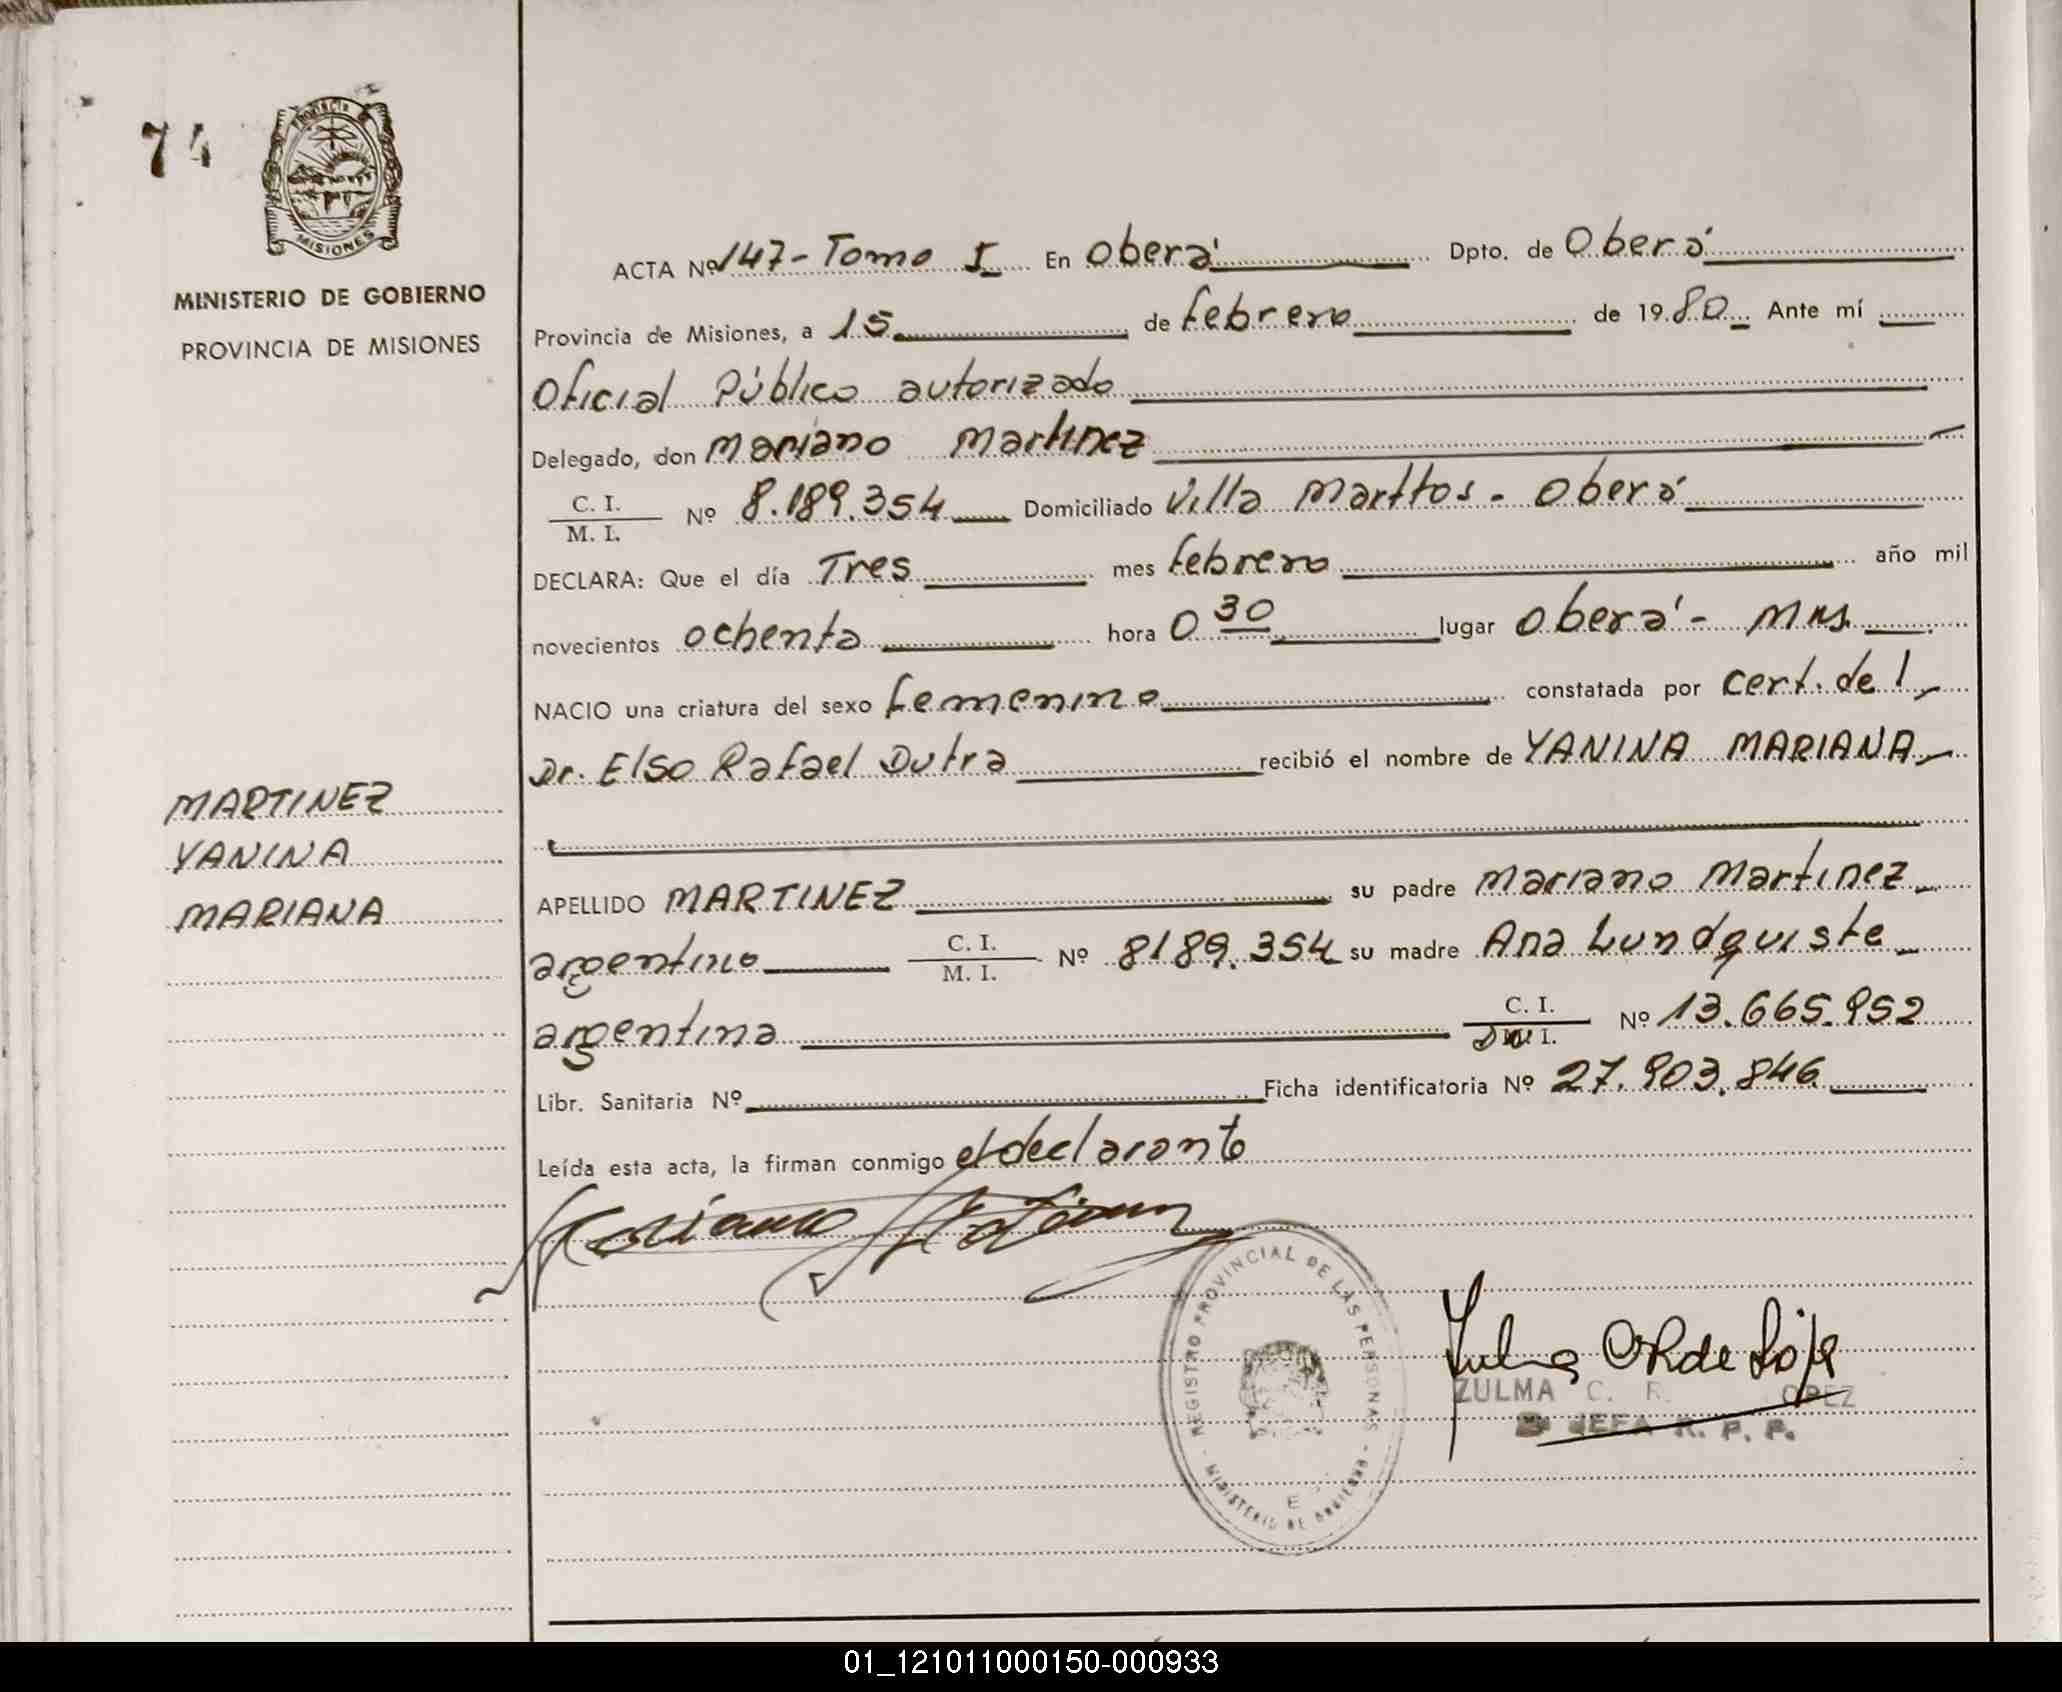 74
PROVINCIA
MISIONES
MINISTERIO DE GOBIERNO
PROVINCIA DE MISIONES
MARTINEZ
YANINA
MARIANA
ACTA Nº 147 - Tomo I En Oberá Dpto. de Oberá
Provincia de Misiones, a 15 de febrero de 1980 Ante mí
Oficial Público autorizado
Delegado, don Mariano Martinez
C. I. / M. I. Nº 8.189.354 Domiciliado Villa Marttos - Oberá
DECLARA: Que el día Tres mes febrero año mil
novecientos ochenta hora 0 30 lugar Oberá - Mns.
NACIO una criatura del sexo femenino constatada por cert. del
Dr. Elso Rafael Dutra recibió el nombre de YANINA MARIANA
APELLIDO MARTINEZ su padre Mariano Martinez
argentino C. I. / M. I. Nº 8189.354 su madre Ana Lundquiste
argentina C. I. / I. Nº 13.665.952
Libr. Sanitaria Nº Ficha identificatoria Nº 27.903.846
Leída esta acta, la firman conmigo el declarante
REGISTRO PROVINCIAL DE LAS PERSONAS
MINISTERIO DE
ZULMA C. R. OPEZ
JEFA R. P. P.
01_121011000150-000933